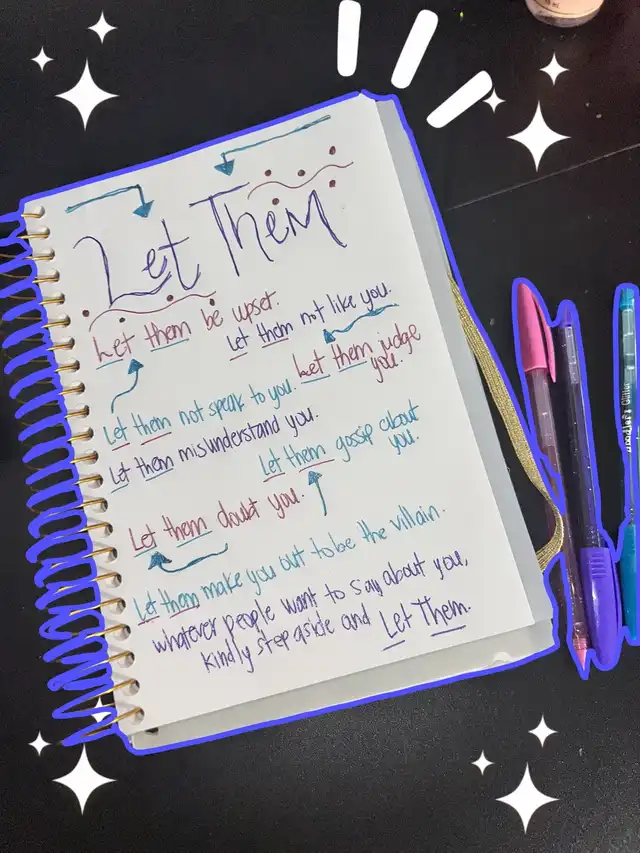 Let Them
Let them be upset.
Let them not like you.
Let them judge
you.
Let them not speak to you.
Let them misunderstand you.
Let them gossip about
you.
Let them doubt you.
Let them make you out to be the villain.
whatever people want to say about you,
kindly step aside and Let Them.